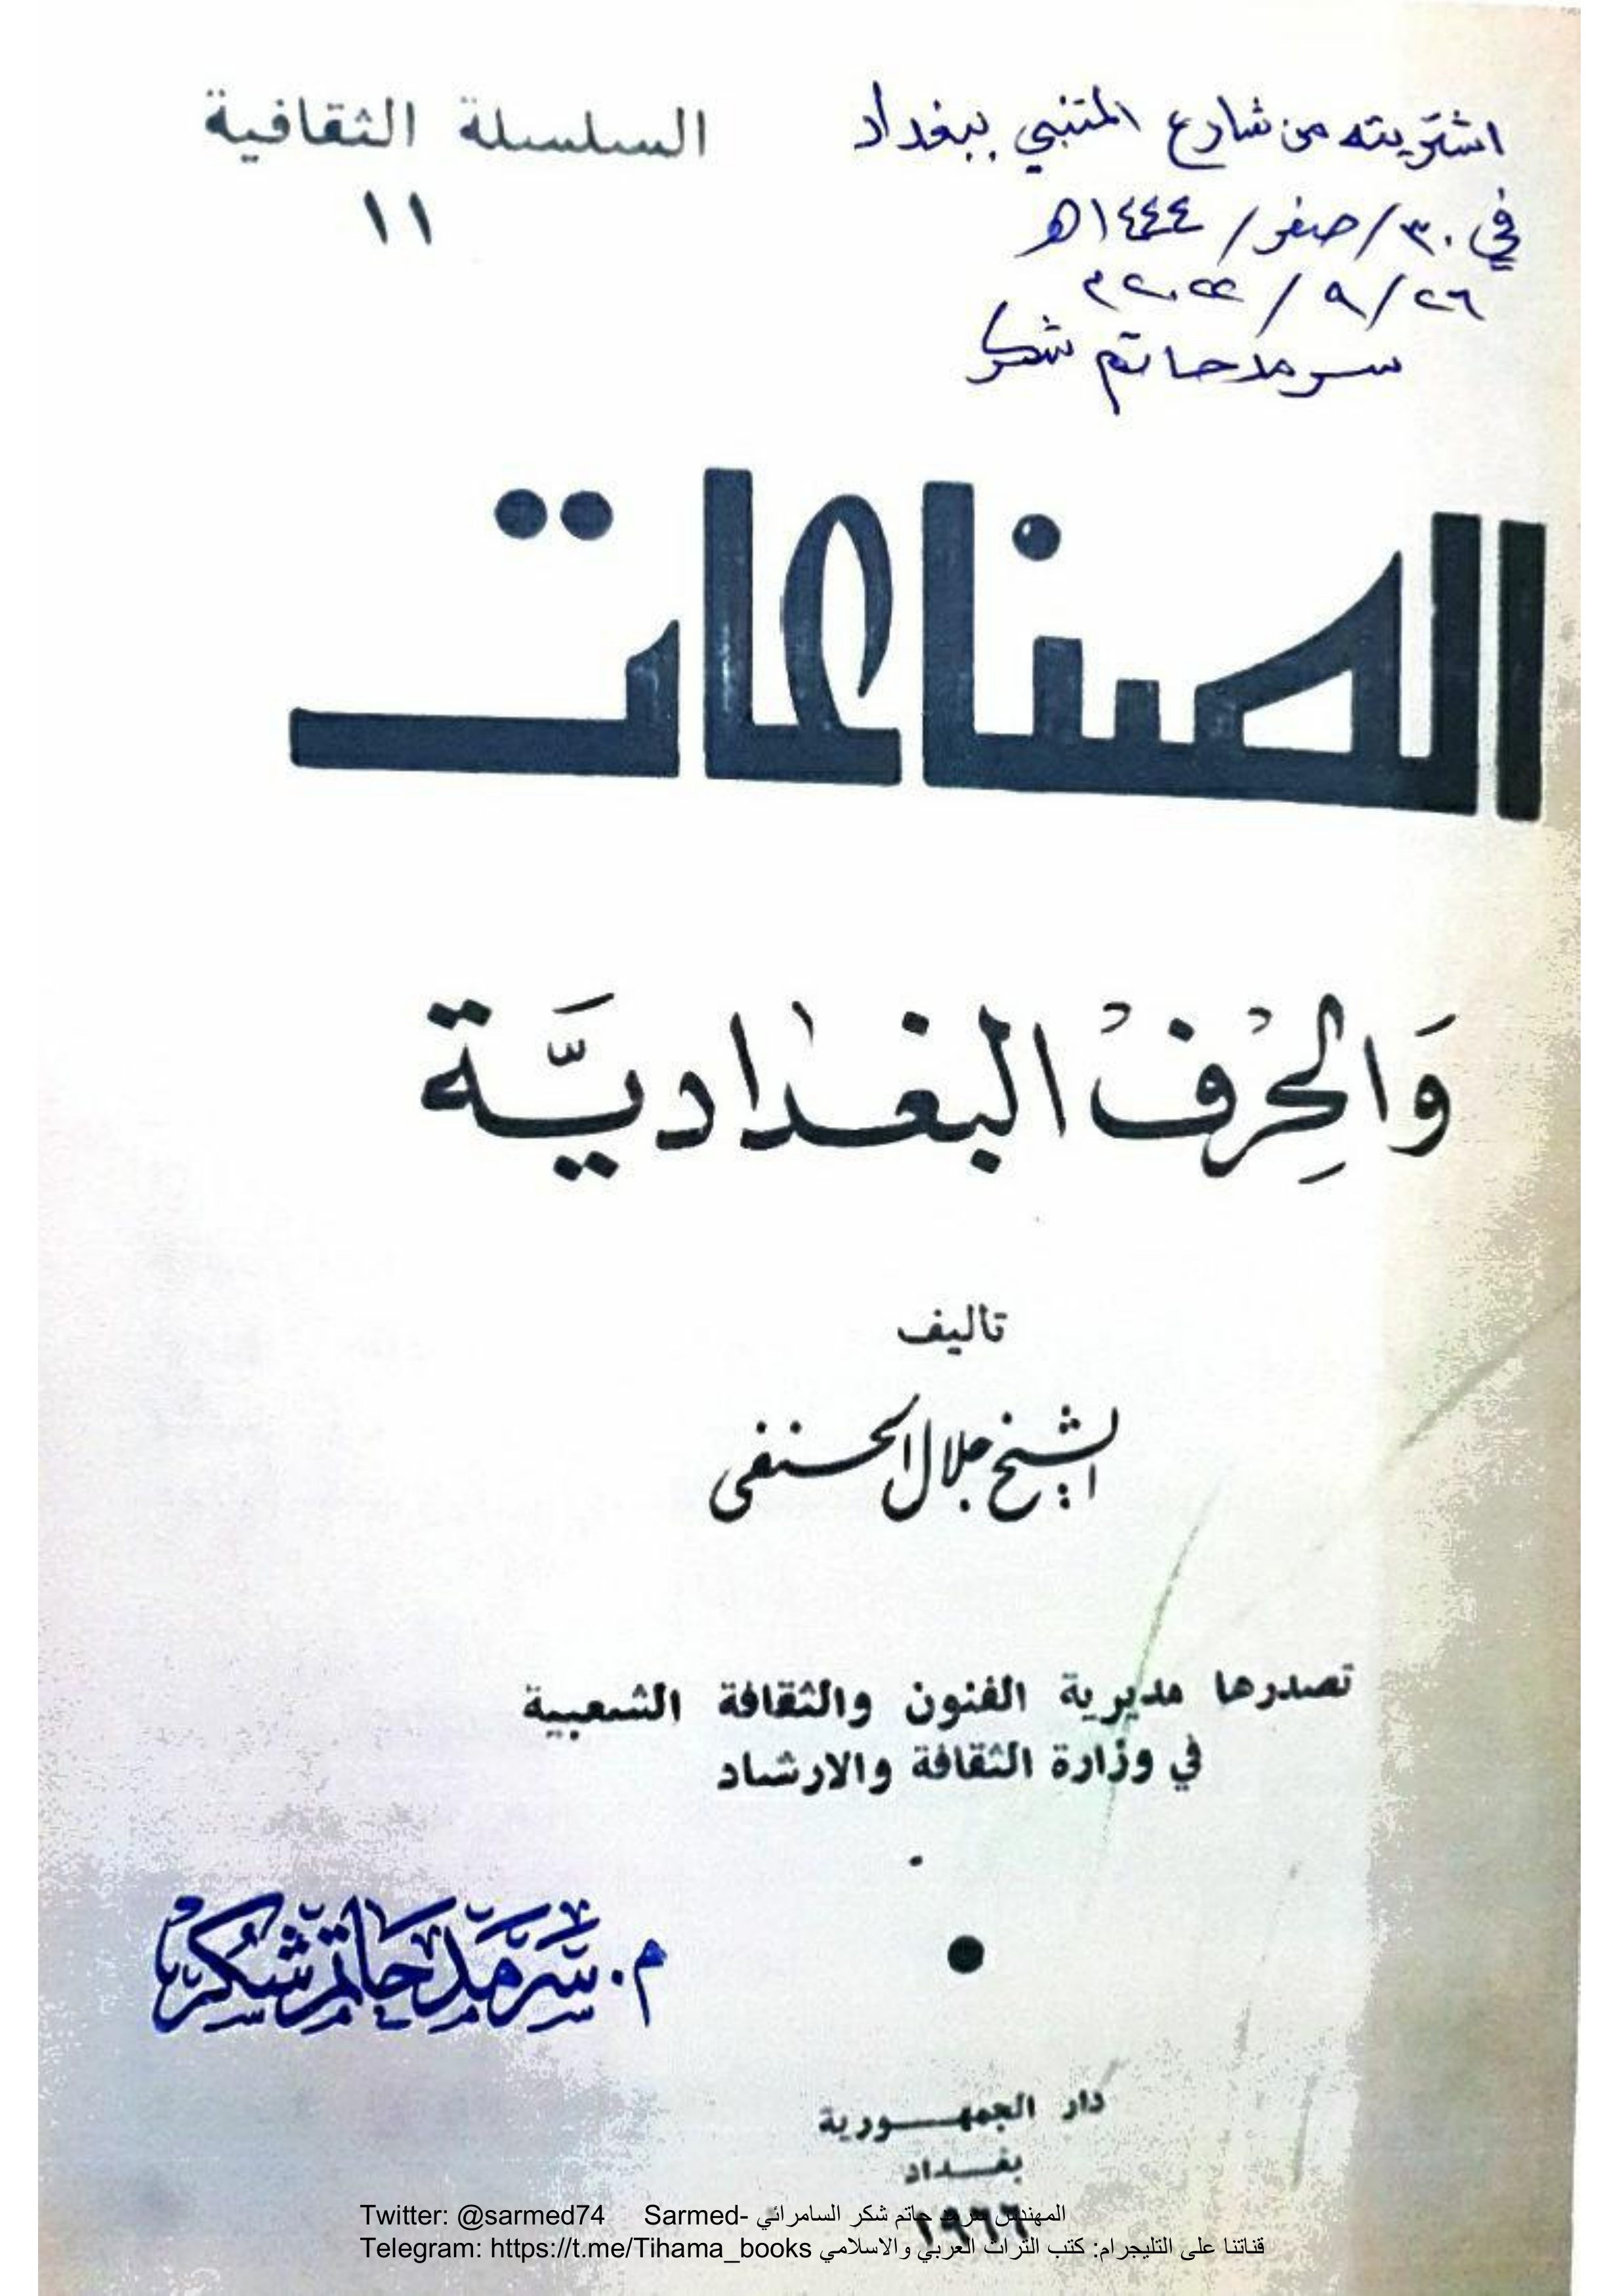 اشتريته من شارع المتنبي ببغداد
في ٣٠/صفر/١٤٤٤ه
٢٦/٩/٢٠٢٢م
سرمد حاتم شكر
السلسلة الثقافية
١١
الصناعات
وَالحِرَفْ البغداديَّة
تاليف
الشيخ جلال الحنفي
تصدرها مديرية الفنون والثقافة الشعبية
في وزارة الثقافة والارشاد
م. سرمد حاتم شكر
دار الجمهـــورية
بغــداد
١٩٦٦
Twitter: @sarmed74 Sarmed- المهندس سرمد حاتم شكر السامرائي
Telegram: https://t.me/Tihama_books قناتنا على التليجرام: كتب التراث العربي والاسلامي